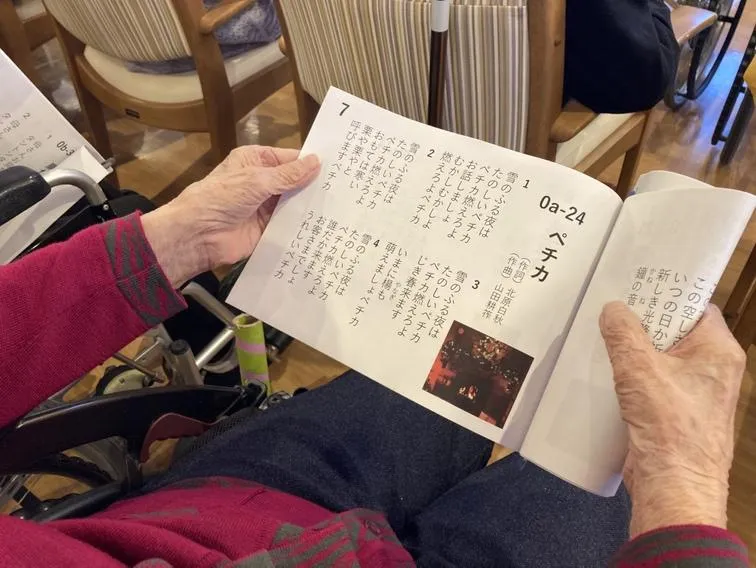 Oa-24 ペチカ
(作詞) 北原白秋
(作曲) 山田耕筰
1
雪のふる夜は
たのしいペチカ
ペチカ燃えろよ
お話しましょ
むかしむかしよ
燃えろよペチカ
2
雪のふる夜は
たのしいペチカ
ペチカ燃えろよ
おもては寒い
栗や栗やと
呼びますペチカ
3
雪のふる夜は
たのしいペチカ
ペチカ燃えろよ
じき春来ます
やなぎ
いまに楊も
萌えましょペチカ
4
雪のふる夜は
たのしいペチカ
ペチカ燃えろよ
誰だか来ます
お客さまでしょ
うれしいペチカ
7
この空
いつの日か
新しき光
かね ね
鐘の音
Ob-3
1
2